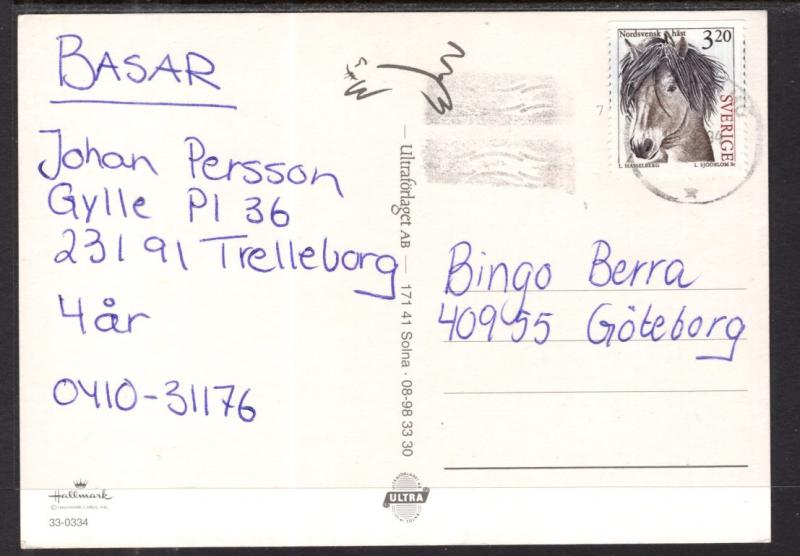 BASAR
Johan Persson
Gylle Pl 36
231 91 Trelleborg
4 år
0410-31176
Hallmark
© HALLMARK CARDS, INC.
33-0334
— Ultraförlaget AB — 171 41 Solna · 08-98 33 30
ULTRA
Nordsvensk häst
3.20
SVERIGE
L. HASSELBERG
L. SJÖÖBLOM Sc
7
Bingo Berra
409 55 Göteborg